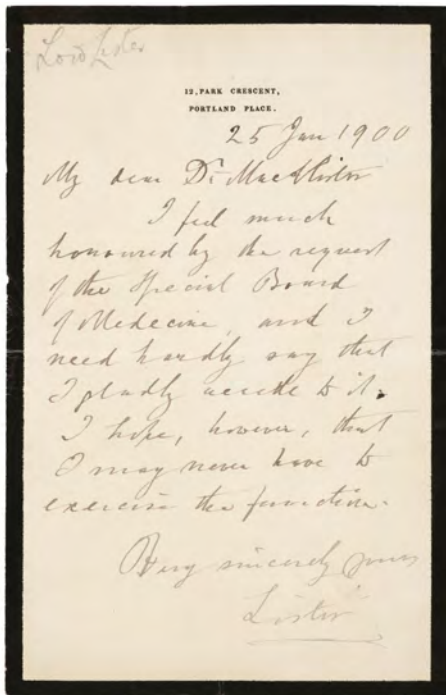 Lord Lister
12, PARK CRESCENT,
PORTLAND PLACE.
25 Jan 1900
My dear Dr. MacAlister
I feel much
honoured by the request
of the Special Board
of Medicine, and I
need hardly say that
I gladly accede to it.
I hope, however, that
I may never have to
exercise the function.
Very sincerely yours
Lister